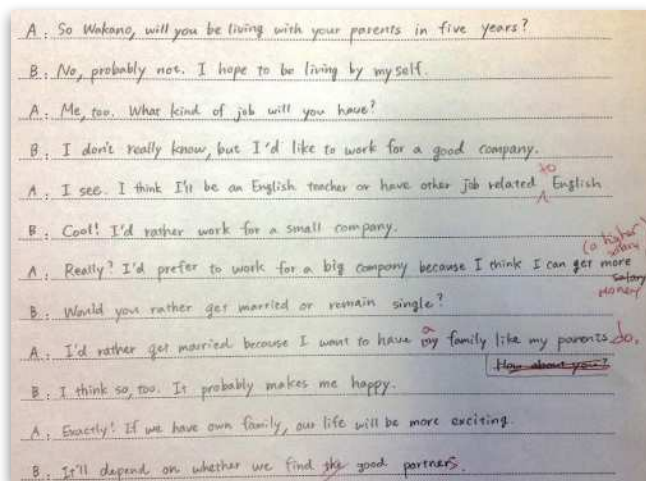 A: So Wakano, will you be living with your parents in five years?
B: No, probably not. I hope to be living by myself.
A: Me, too. What kind of job will you have?
B: I don't really know, but I'd like to work for a good company.
to
A: I see. I think I'll be an English teacher or have other job related English
B: Cool! I'd rather work for a small company.
(a higher salary)
A: Really? I'd prefer to work for a big company because I think I can get more
salary
money
B: Would you rather get married or remain single?
a
A: I'd rather get married because I want to have my family like my parents do.
How about you?
B: I think so, too. It probably makes me happy.
A: Exactly! If we have own family, our life will be more exciting.
B: It'll depend on whether we find the good partners.